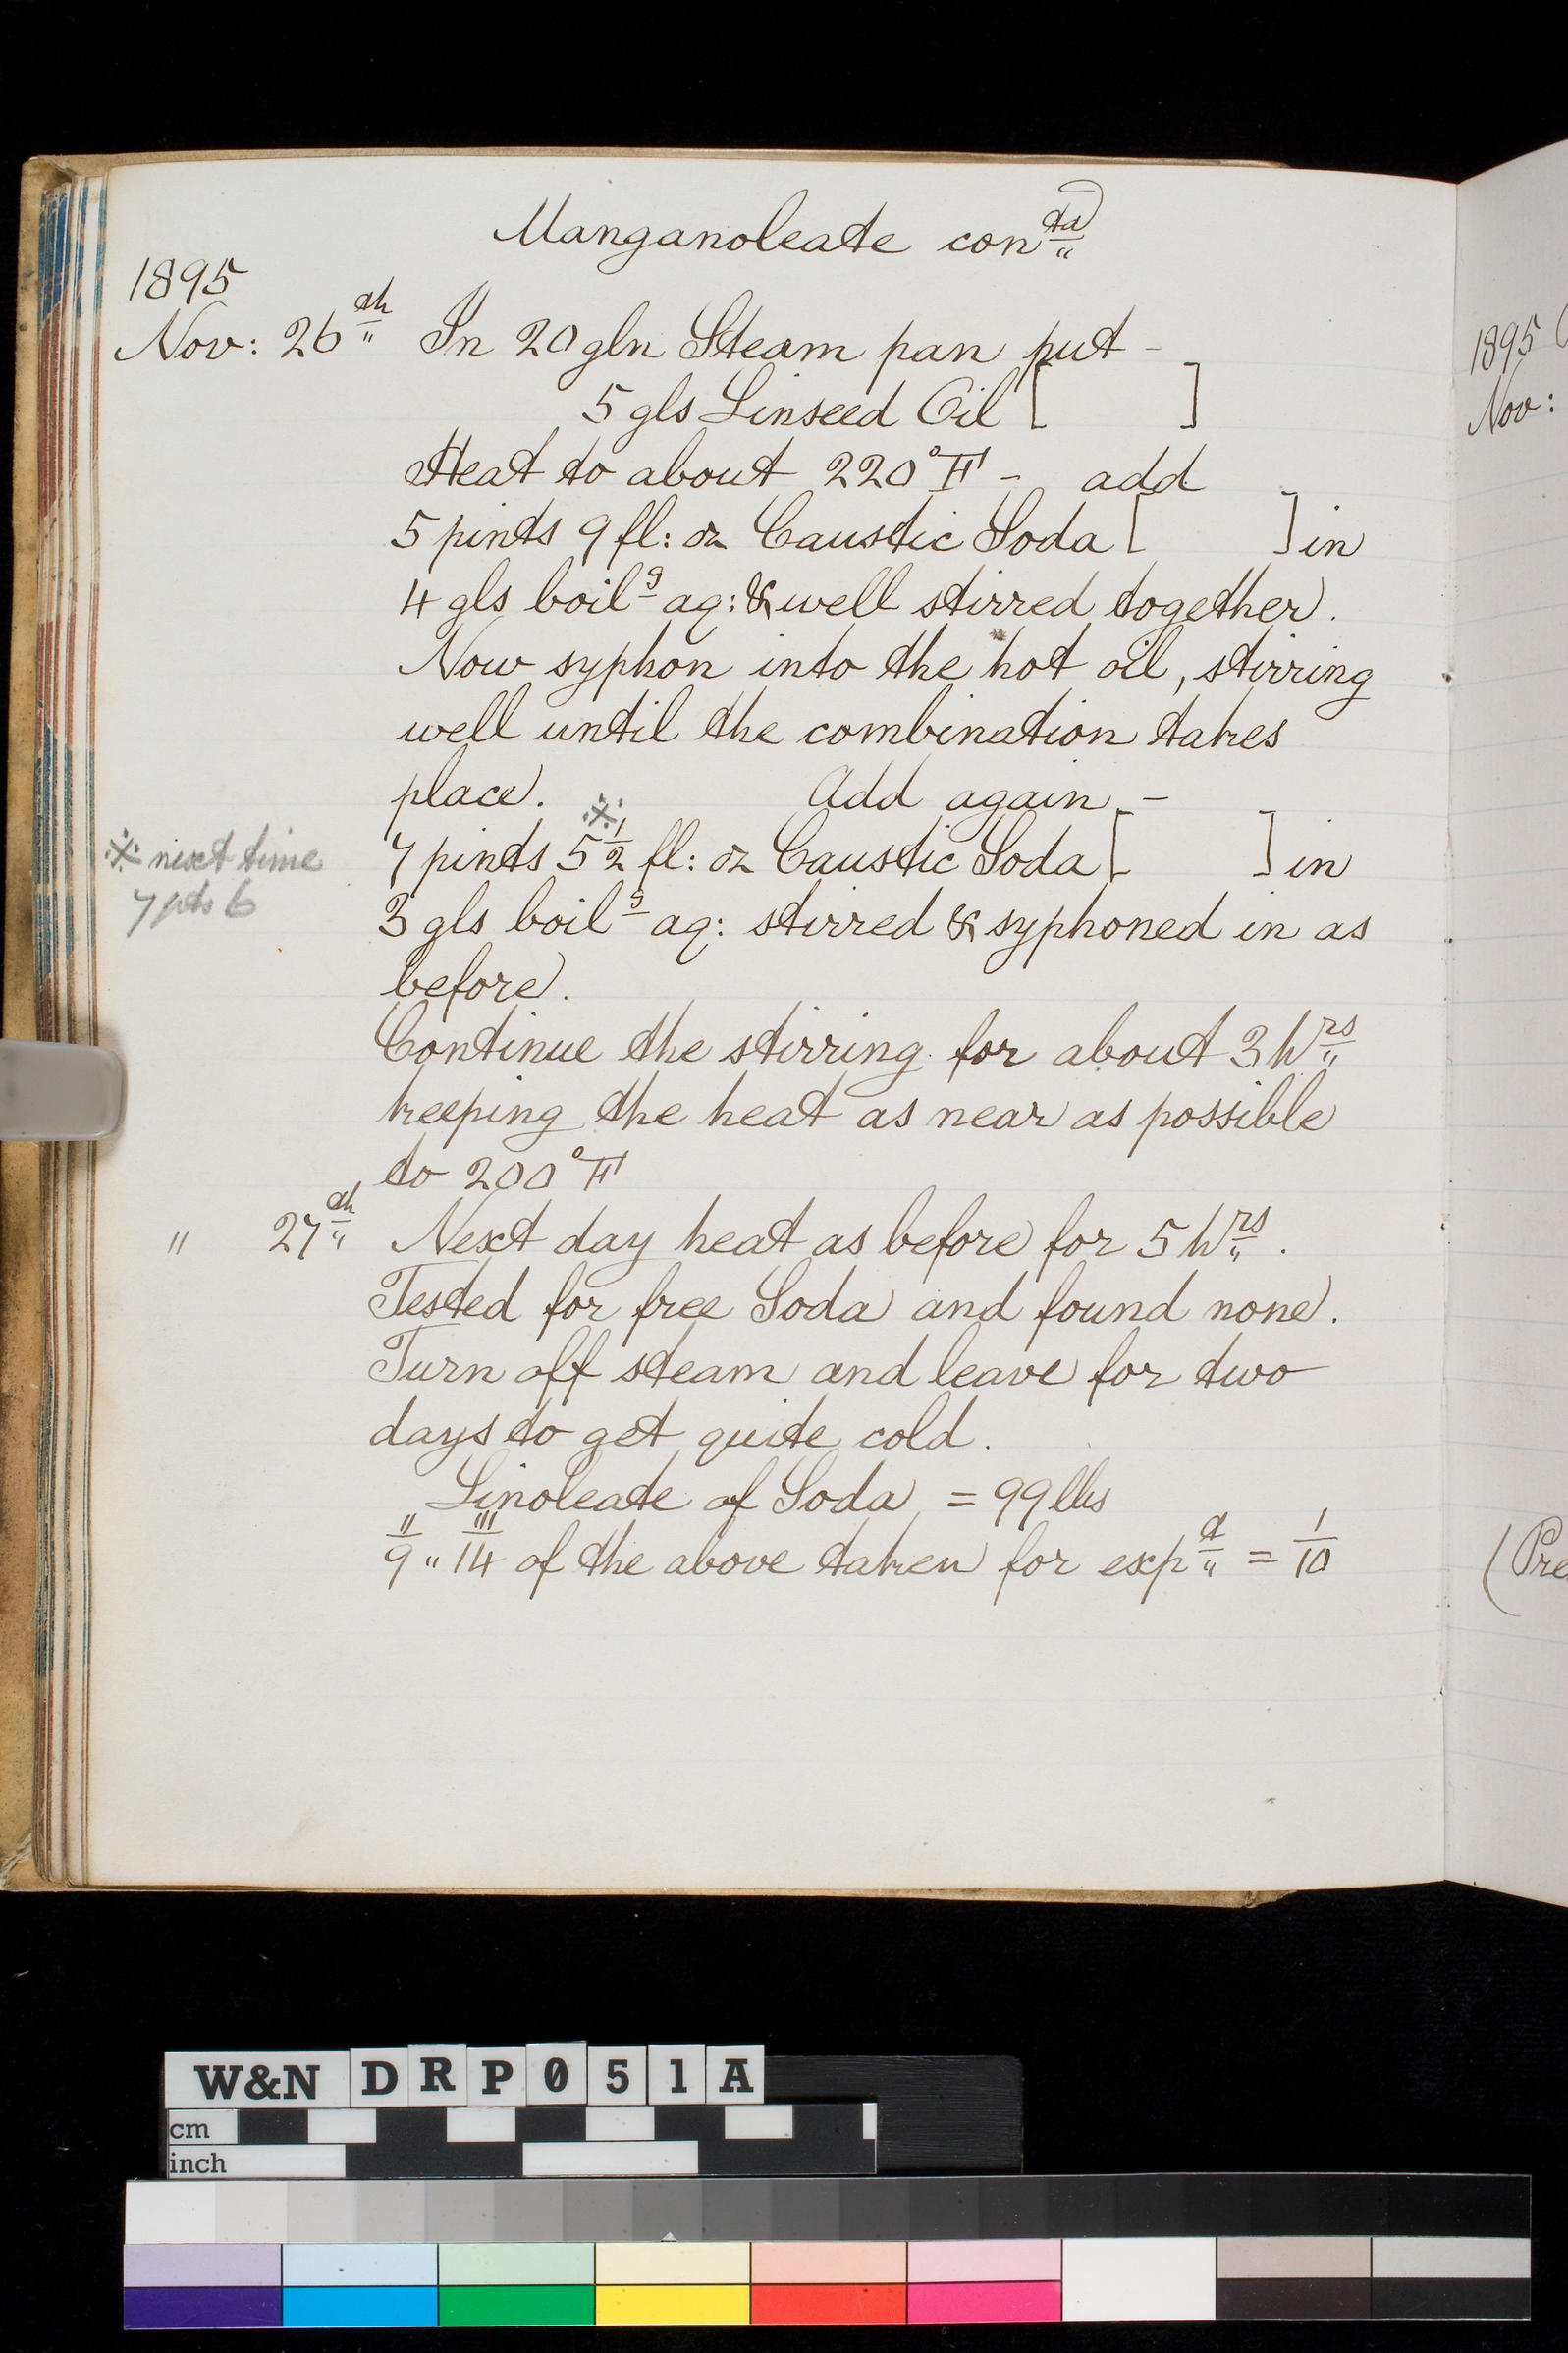 Manganoleate contd
1895
Nov: 26th In 20 gln Steam pan put -
5 gls Linseed Oil [ ]
Heat to about 220°F - add
5 pints 9 fl: oz Caustic Soda [ ] in
4 gls boilg aq: & well stirred together.
Now syphon into the hot oil, stirring
well until the combination takes
place. Add again -
※
7 pints 5 1/2 fl: oz Caustic Soda [ ] in
※ next time
7 pts 6
3 gls boilg aq: stirred & syphoned in as
before.
Continue the stirring for about 3 hrs
keeping the heat as near as possible
to 200°F
" 27th Next day heat as before for 5 hrs.
Tested for free Soda and found none.
Turn off steam and leave for two
days to get quite cold.
Linoleate of Soda = 99 lbs
9 " 14 of the above taken for expt = 1/10
1895
Nov:
(Pre
W&N DRP051A
cm
inch